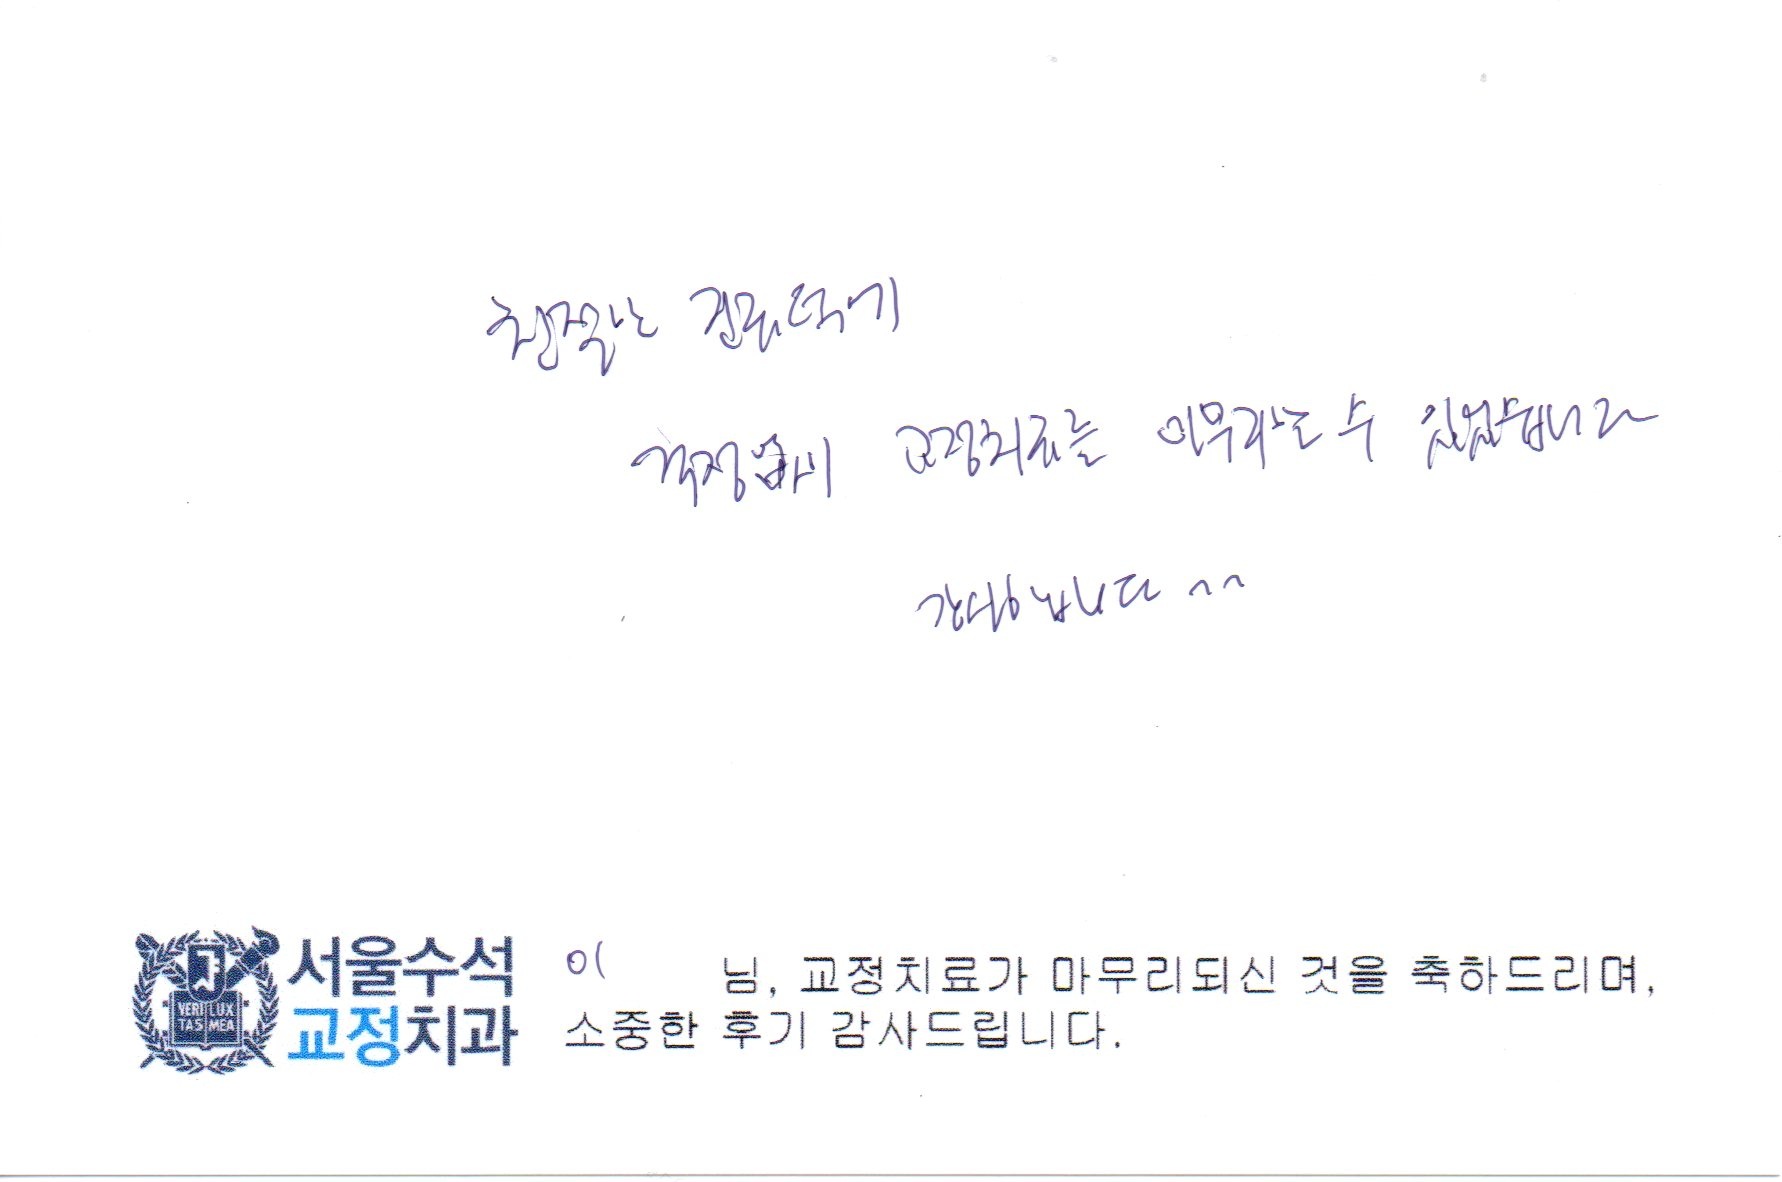 진료덕에
걱정없이 교정치료를 마무리할 수 있었습니다
감사합니다 ^^
서울수석
교정치과
VERI LUX
TAS MEA
이 님, 교정치료가 마무리되신 것을 축하드리며,
소중한 후기 감사드립니다.